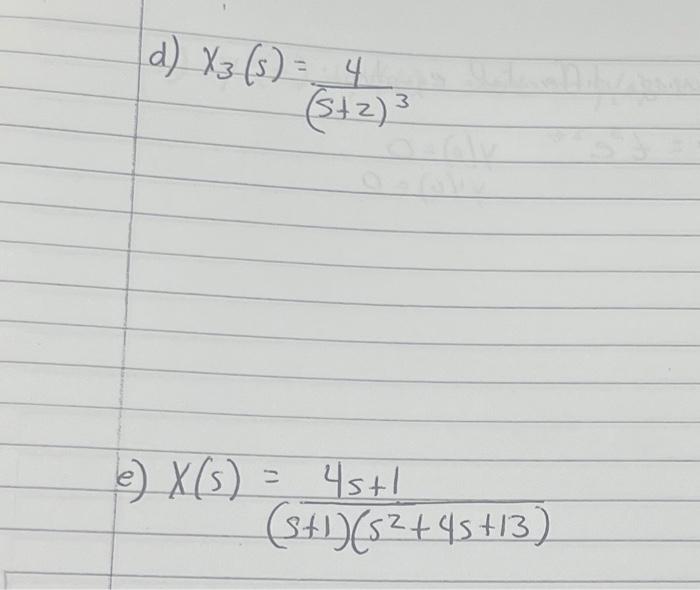 d) X₃(s) = 4
(s+2)³
e) X(s) = 4s+1
(s+1)(s²+4s+13)